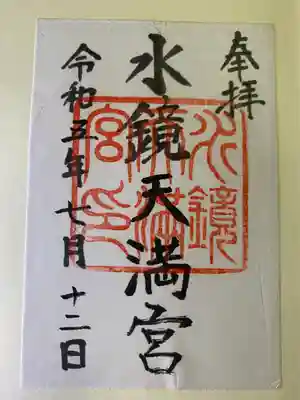 奉拝
水鏡天満宮
令和五年七月十二日
水鏡天満宮印